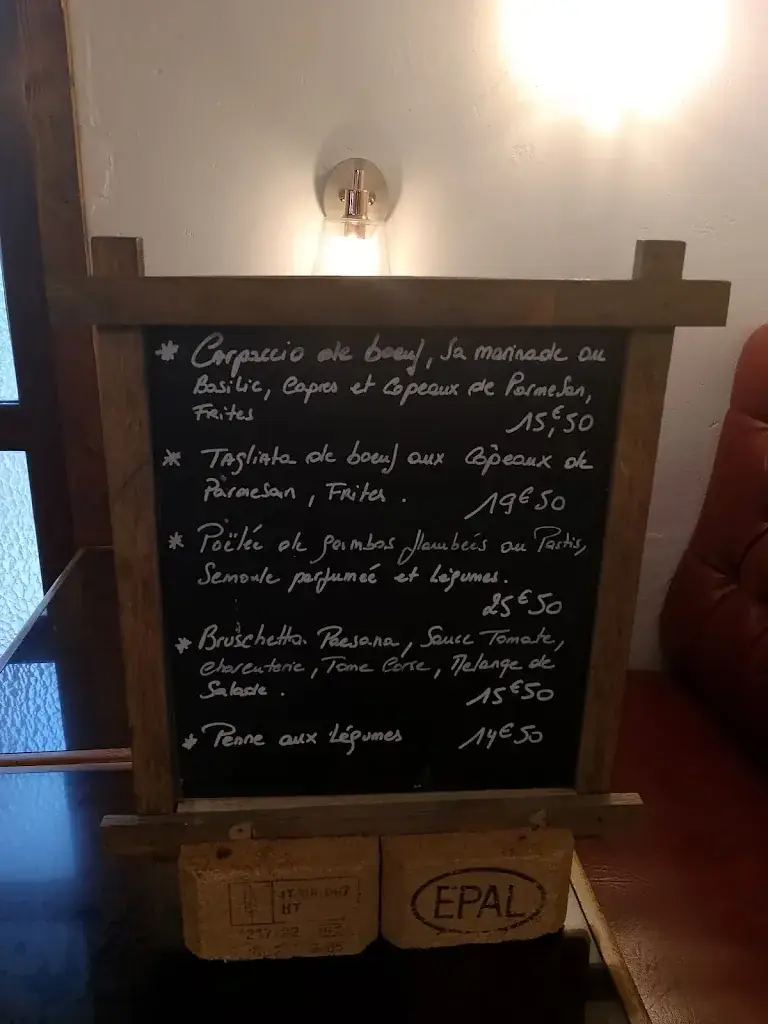 * Carpaccio de boeuf, sa marinade au
Basilic, Capres et Copeaux de Parmesan,
Frites
15,€50
* Tagliata de boeuf aux Côpeaux de
Parmesan, Frites.
19€50
* Poëlée de gambas flambées au Pastis,
Semoule parfumée et Légumes.
25€50
* Bruschetta Paesana, Sauce Tomate,
charcuterie, Tome Corse, Melange de
Salade.
15€50
* Penne aux Légumes 14€50
HT
EPAL